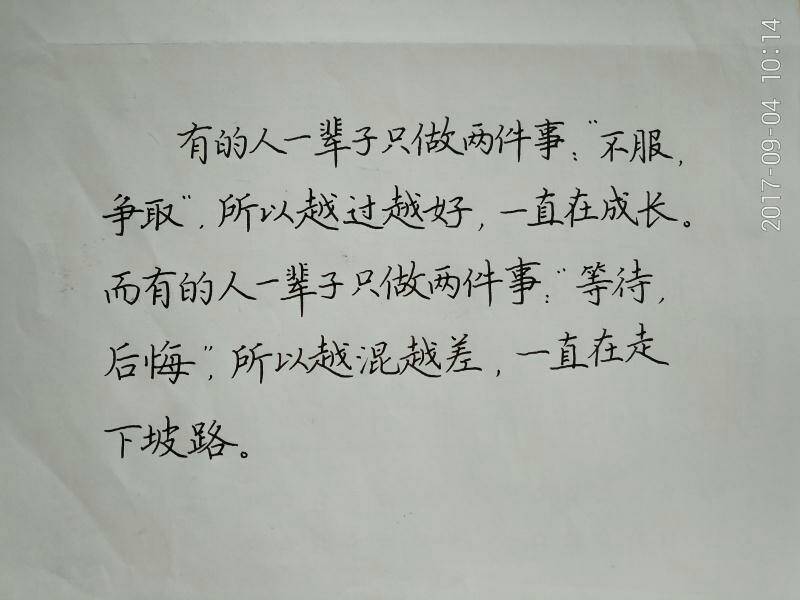 有的人一辈子只做两件事："不服，
争取"，所以越过越好，一直在成长。
而有的人一辈子只做两件事："等待，
后悔"，所以越混越差，一直在走
下坡路。
2017-09-04 10:14